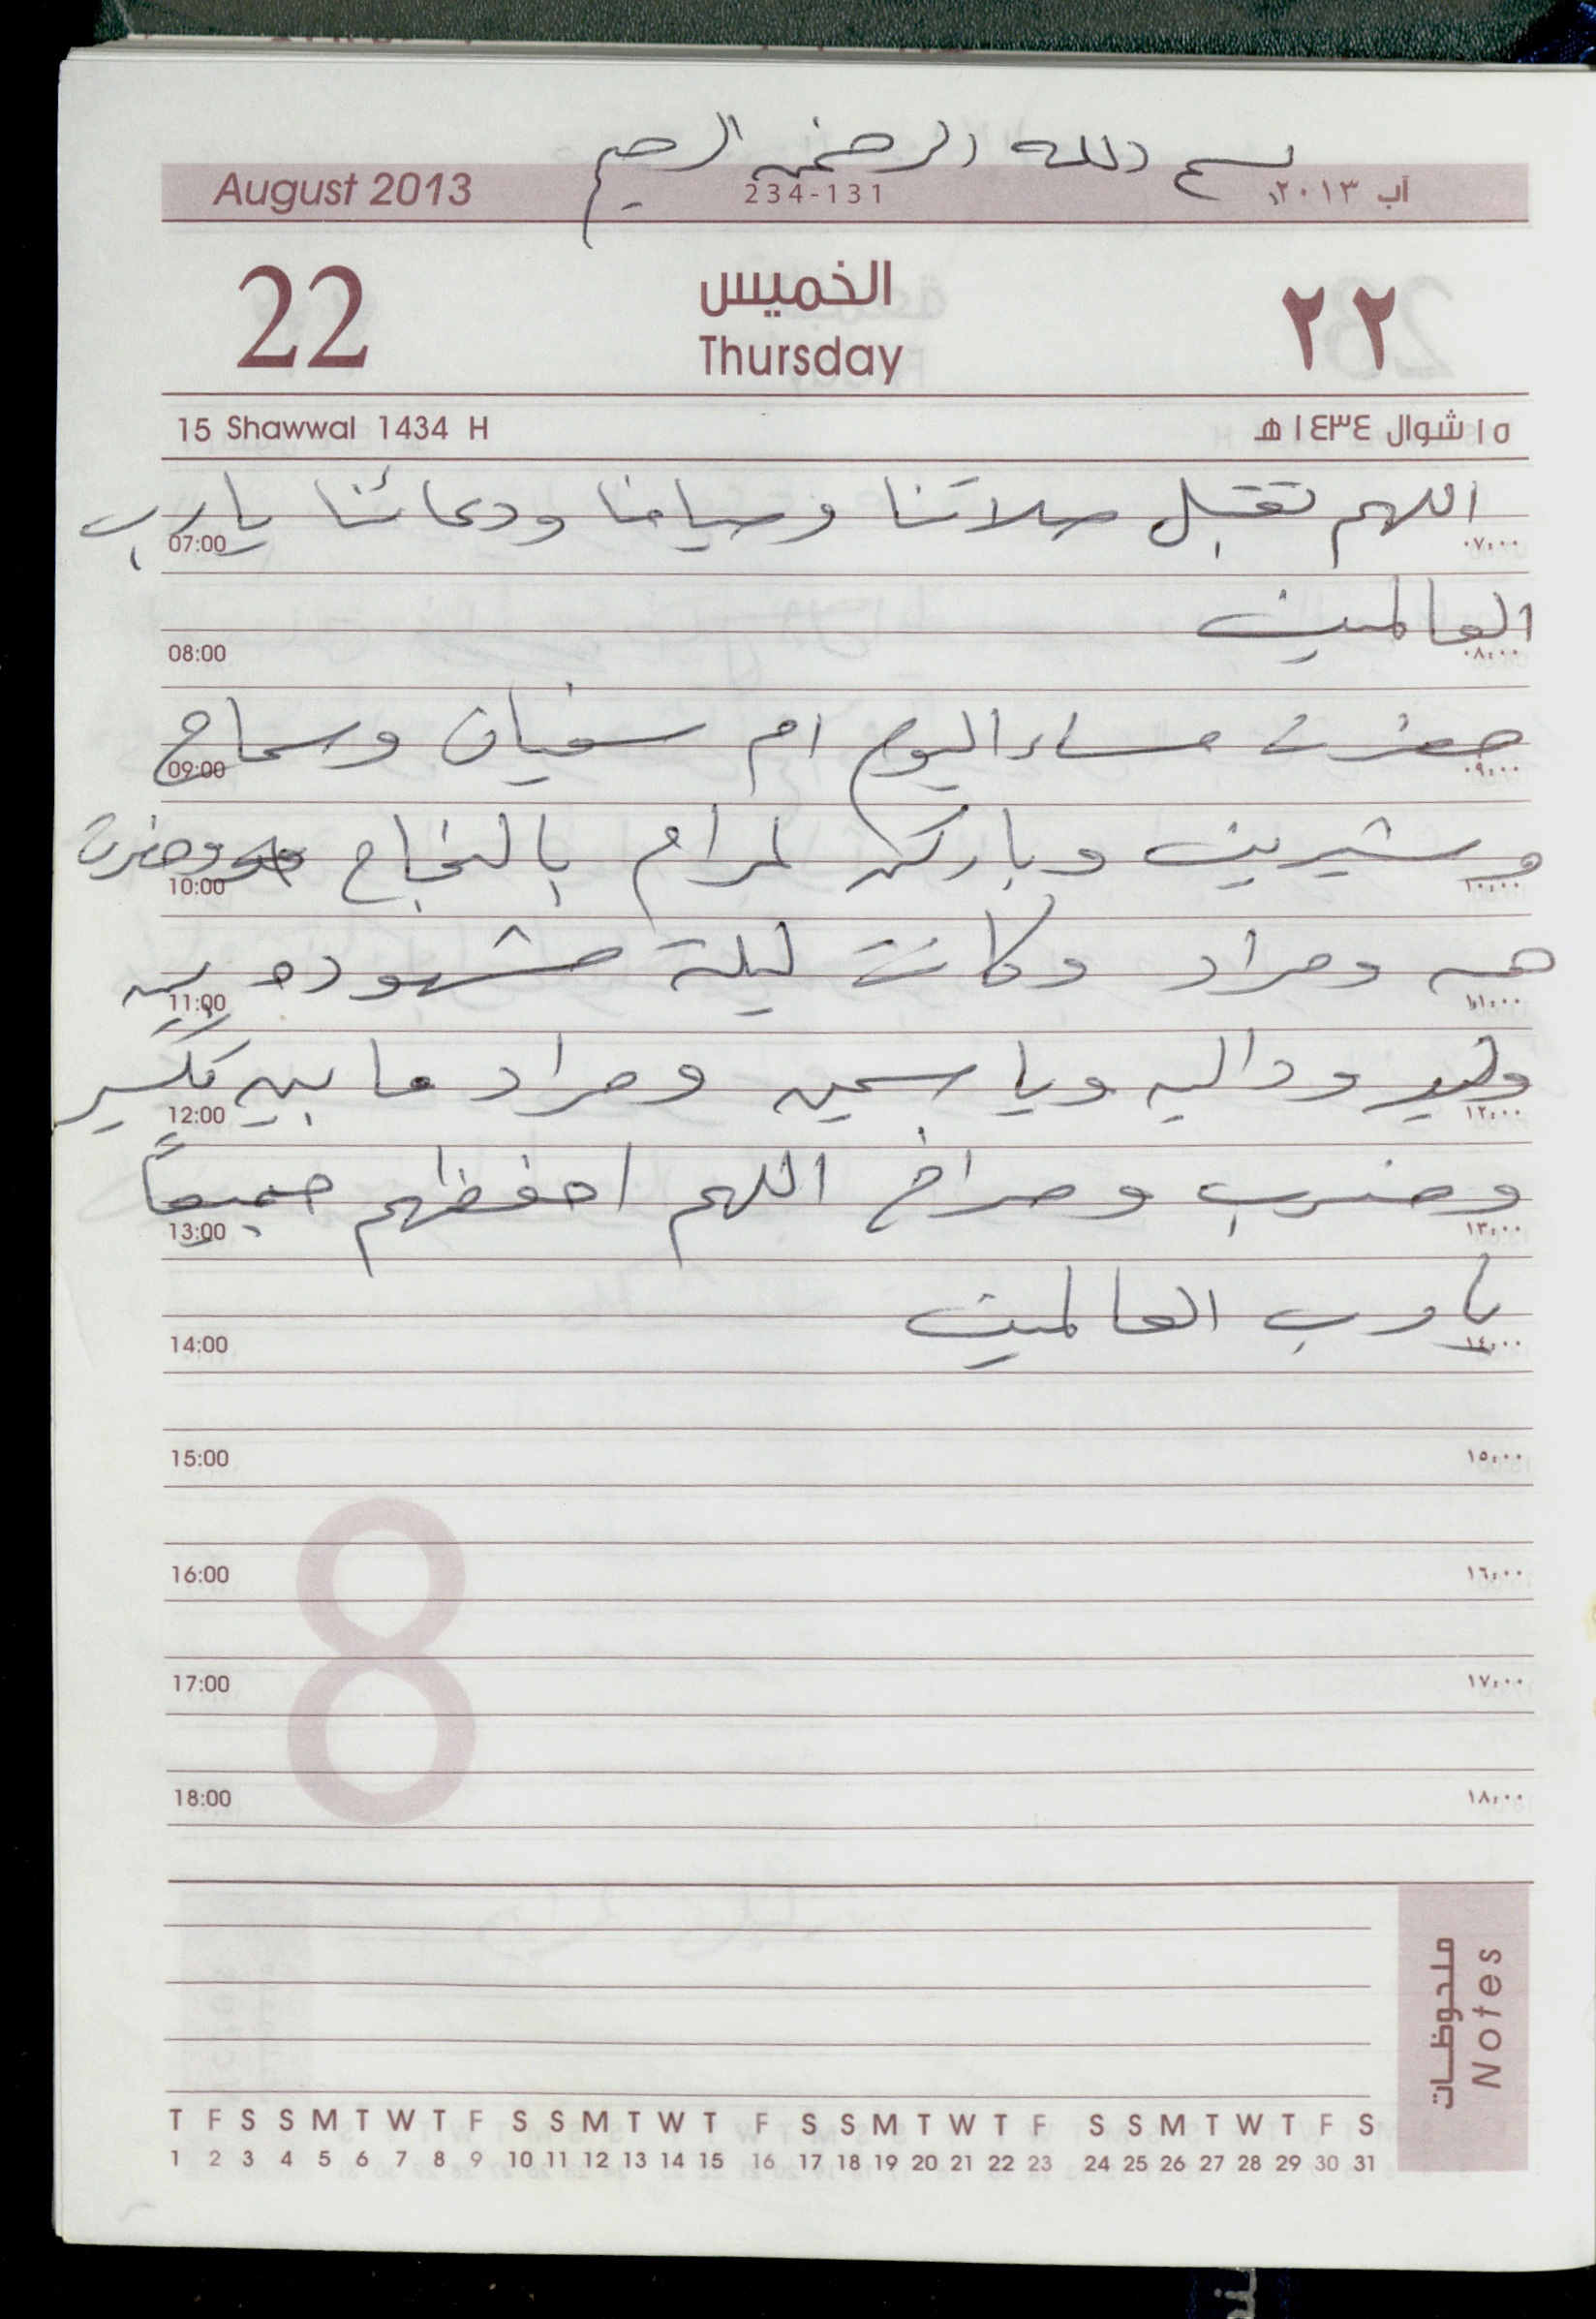 بسم الله الرحمن الرحيم
August 2013 234-131 آب ٢٠١٣
22 الخميس ٢٢
Thursday
15 Shawwal 1434 H ١٥ شوال ١٤٣٤ هـ
اللهم تقبل صلاتنا وصيامنا ودعائنا يارب
07:00 ٠٧:٠٠
العالمين
08:00 ٠٨:٠٠
حضرت مساء اليوم ام سفيان وسماح
09:00 ٠٩:٠٠
وشيرين وباركن لمرام بالنجاح وحضرت
10:00 ١٠:٠٠
هبه ومراد وكانت ليلة مشهوده بين
11:00 ١١:٠٠
وليد وداليه وياسمين ومراد ما بين تكسير
12:00 ١٢:٠٠
وضرب وصراخ اللهم احفظهم جميعاً
13:00 ١٣:٠٠
يا رب العالمين
14:00 ١٤:٠٠
15:00 ١٥:٠٠
16:00 ١٦:٠٠
8
17:00 ١٧:٠٠
18:00 ١٨:٠٠
ملحوظات
Notes
T F S S M T W T F S S M T W T F S S M T W T F S S M T W T F S
1 2 3 4 5 6 7 8 9 10 11 12 13 14 15 16 17 18 19 20 21 22 23 24 25 26 27 28 29 30 31